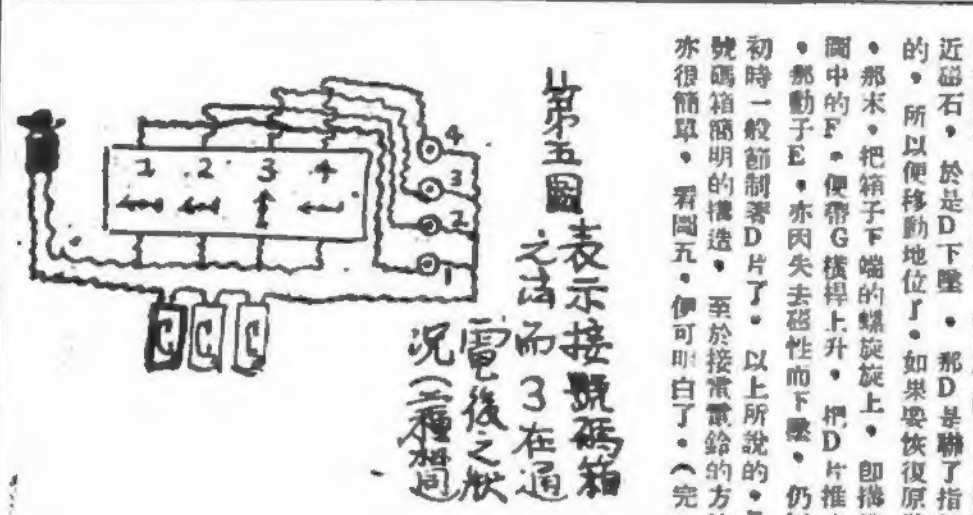 近磁石，於是D下墜，那D是聯了指
的，所以便移動地位了。如果要恢復原
，那末，把箱子下端的螺旋旋上，卽
圖中的F，便帶G槓桿上升，把D片推
，那動子E，亦因失去磁性而下墜，仍
初時一般節制著D片了。以上所說的，
號碼箱簡明的構造，至於接電鈴的方
亦很簡單，看圖五，便可明白了。（完
第五圖
表示接號碼箱
之法而3在通
電後之狀
況（三種
1 2 3 4
4
3
2
1
C C C